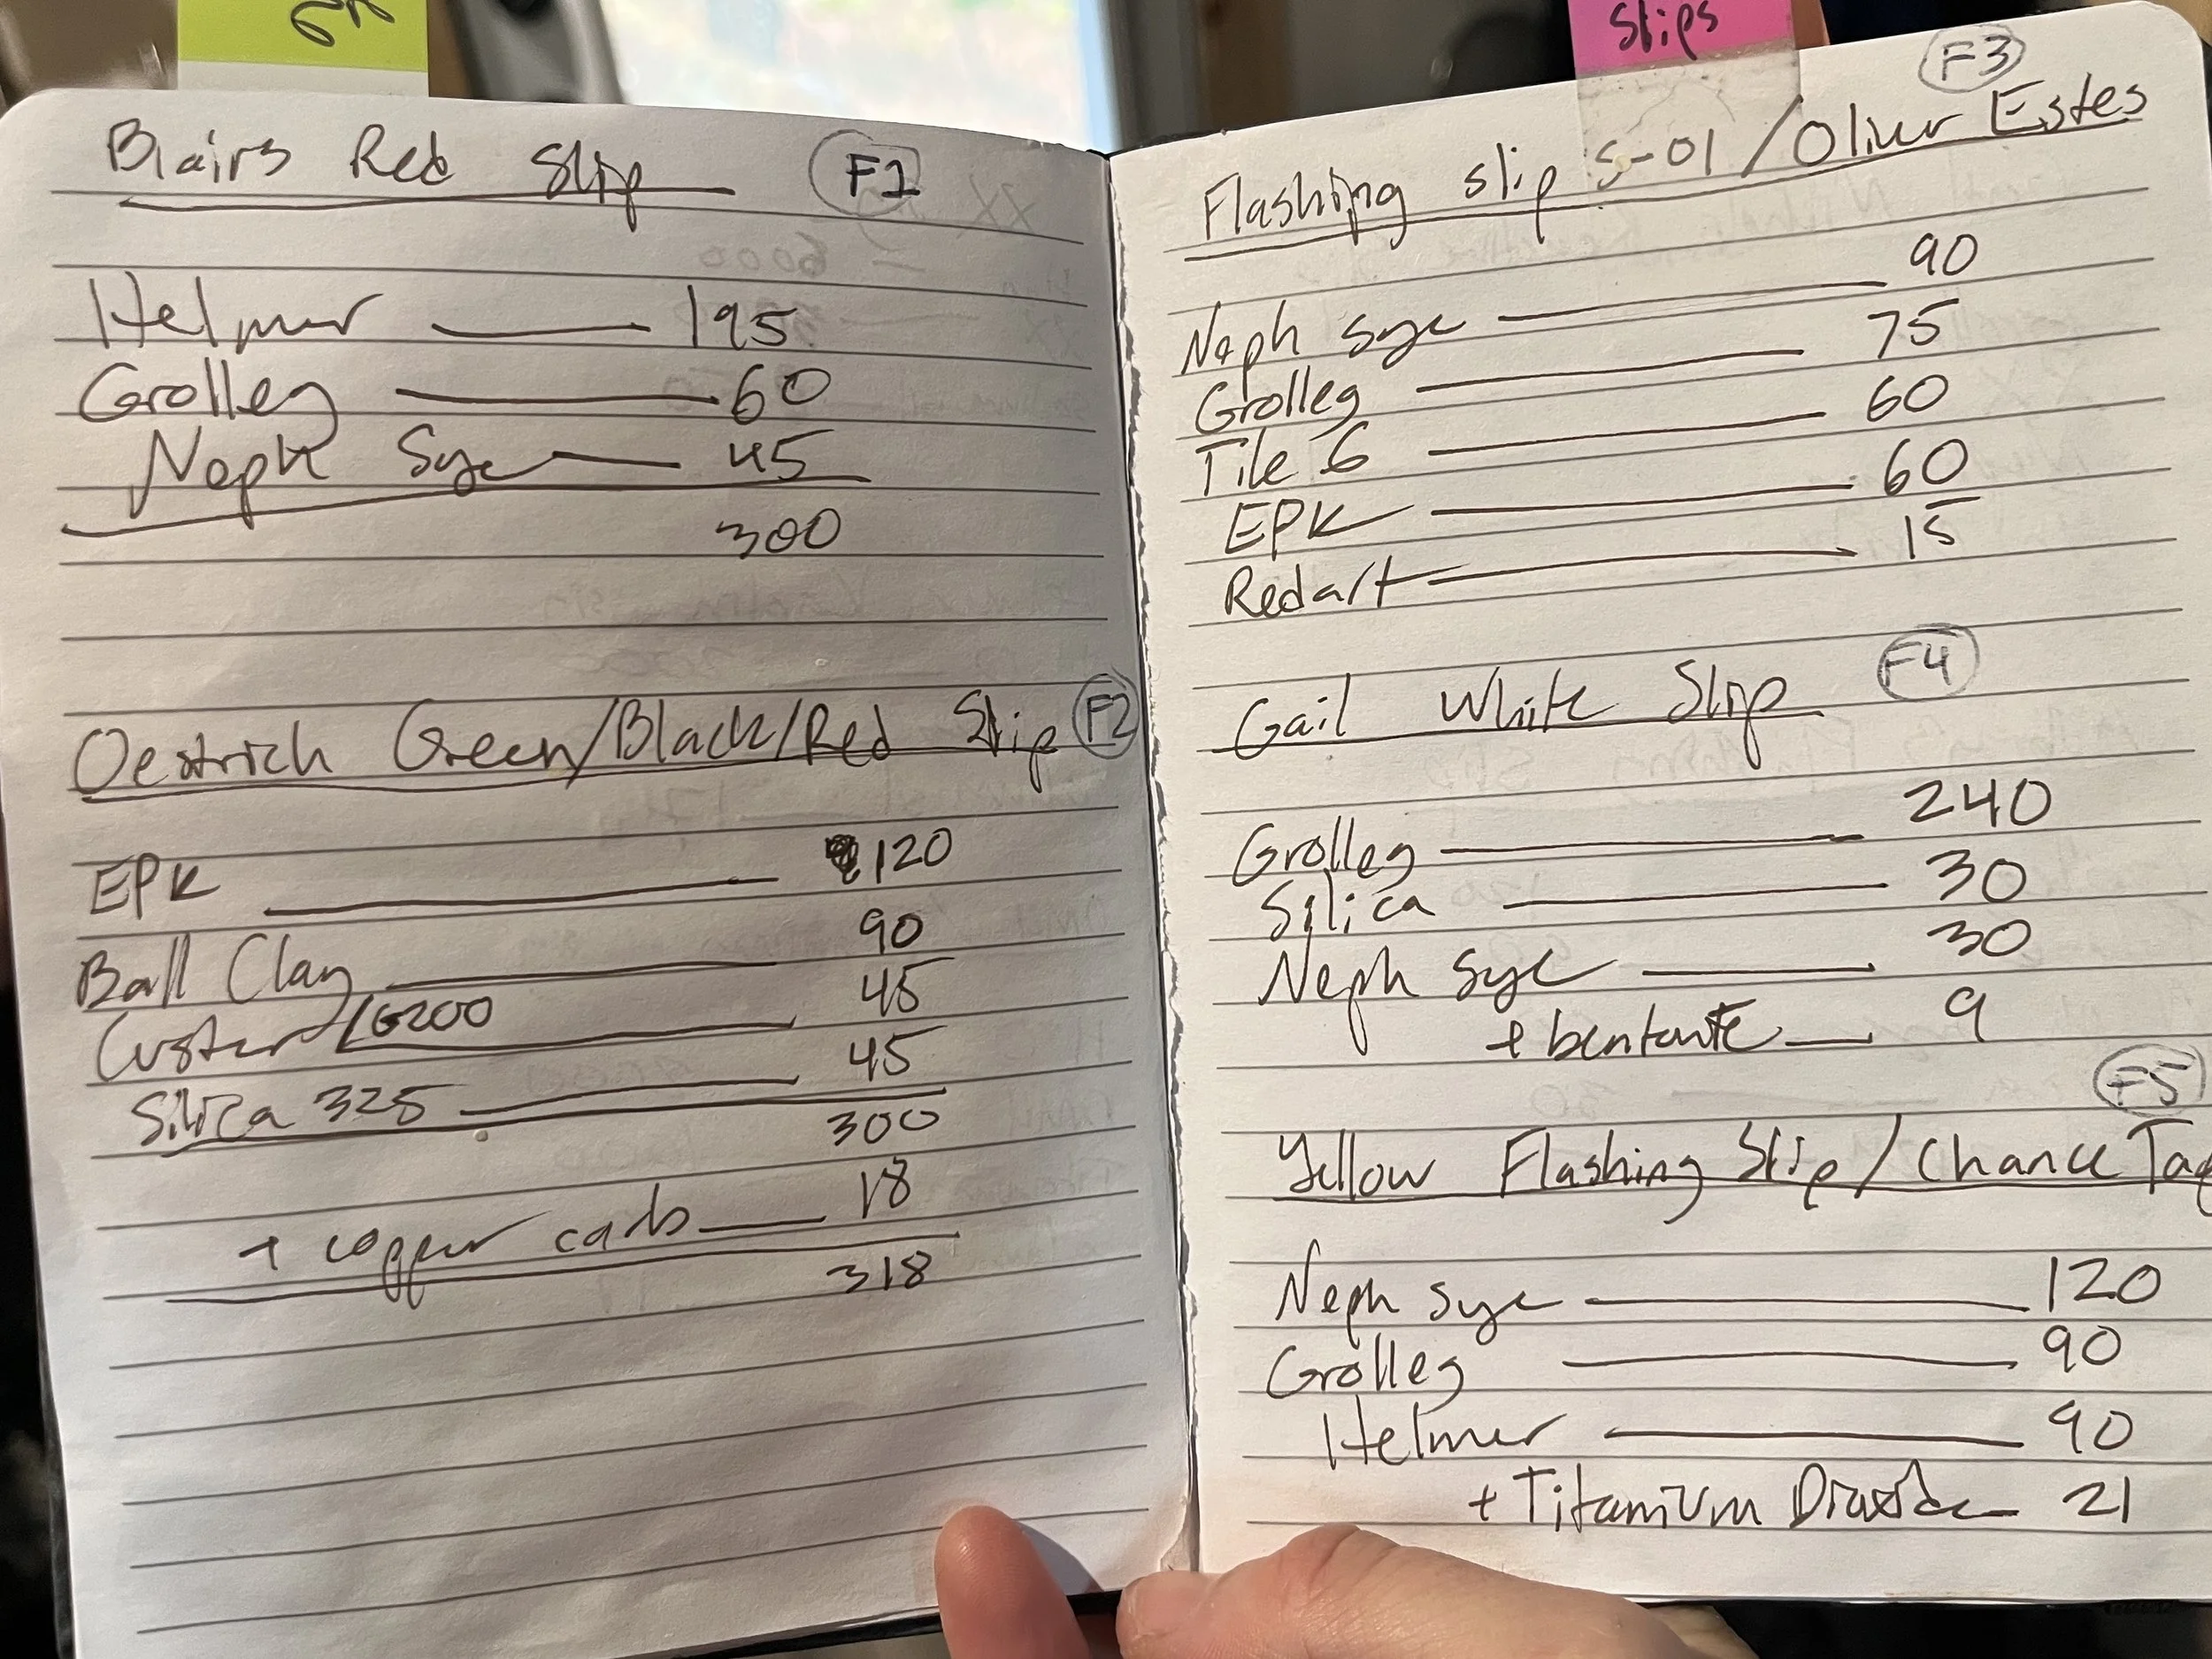 Slips
Blairs Red Slip F1
Helmer 195
Grolleg 60
Neph Sye 45
300
Oestrich Green/Black/Red Slip F2
EPK 120
Ball Clay 90
Custer/G200 45
Silica 325 45
300
+ copper carb 18
318
F3
Flashing slip S-01/Oliver Estes
Neph Sye 90
Grolleg 75
Tile 6 60
EPK 60
Redart 15
Gail White Slip F4
Grolleg 240
Silica 30
Neph Sye 30
+ bentonite 9
F5
Yellow Flashing Slip/Chance Tag
Neph Sye 120
Grolleg 90
Helmer 90
+ Titanium Dioxide 21